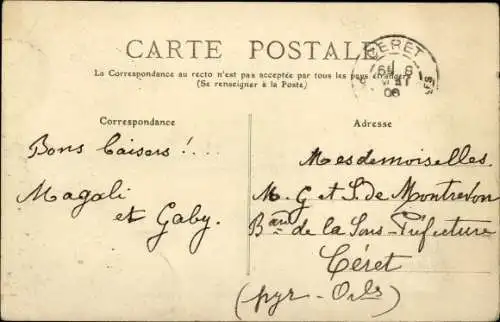 CARTE POSTALE
La Correspondance au recto n'est pas acceptée par tous les pays étrangers
(Se renseigner à la Poste)
CERET
08
Correspondance
Adresse
Bons baisers !...
Magali
et Gaby.
Mesdemoiselles
M. G et S. de Montredon
B^on de la Sous-Préfecture
Céret
(Pyr-Orles)